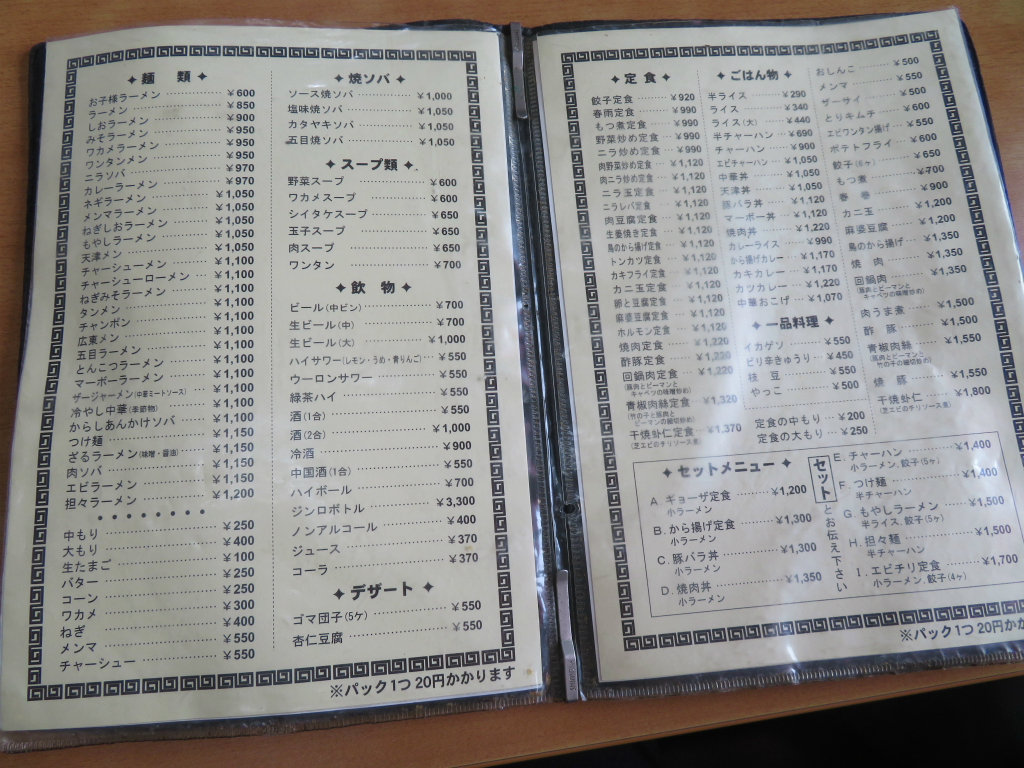 ✦ 麺 類 ✦
お子様ラーメン ¥600
ラーメン ¥850
しおラーメン ¥900
みそラーメン ¥950
ワカメラーメン ¥950
ワンタンメン ¥950
ニラソバ ¥970
カレーラーメン ¥970
ネギラーメン ¥1,050
メンマラーメン ¥1,050
ねぎしおラーメン ¥1,050
もやしラーメン ¥1,050
天津メン ¥1,050
チャーシューメン ¥1,100
チャーシューローメン ¥1,100
ねぎみそラーメン ¥1,100
タンメン ¥1,100
チャンポン ¥1,100
広東メン ¥1,100
五目ラーメン ¥1,100
とんこつラーメン ¥1,100
マーボーラーメン ¥1,100
ザージャーメン(中華ミートソース) ¥1,100
冷やし中華(季節物) ¥1,100
からしあんかけソバ ¥1,100
つけ麺 ¥1,150
ざるラーメン(味噌・醤油) ¥1,150
肉ソバ ¥1,150
エビラーメン ¥1,150
担々ラーメン ¥1,200
中もり ¥250
大もり ¥400
生たまご ¥100
バター ¥250
コーン ¥250
ワカメ ¥300
ねぎ ¥400
メンマ ¥550
チャーシュー ¥550
✦ 焼ソバ ✦
ソース焼ソバ ¥1,000
塩味焼ソバ ¥1,050
カタヤキソバ ¥1,050
五目焼ソバ ¥1,050
✦ スープ類 ✦
野菜スープ ¥600
ワカメスープ ¥600
シイタケスープ ¥650
玉子スープ ¥650
肉スープ ¥650
ワンタン ¥700
✦ 飲 物 ✦
ビール(中ビン) ¥700
生ビール(中) ¥700
生ビール(大) ¥1,000
ハイサワー(レモン・うめ・青りんご) ¥550
ウーロンサワー ¥550
緑茶ハイ ¥550
酒(1合) ¥550
酒(2合) ¥1,000
冷酒 ¥900
中国酒(1合) ¥550
ハイボール ¥700
ジンロボトル ¥3,300
ノンアルコール ¥400
ジュース ¥370
コーラ ¥370
✦ デザート ✦
ゴマ団子(5ケ) ¥550
杏仁豆腐 ¥550
※パック1つ20円かかります
✦ 定 食 ✦
餃子定食 ¥920
春雨定食 ¥990
もつ煮定食 ¥990
野菜炒め定食 ¥990
ニラ炒め定食 ¥990
肉野菜炒め定食 ¥1,120
肉ニラ炒め定食 ¥1,120
ニラ玉定食 ¥1,120
ニラレバ定食 ¥1,120
肉豆腐定食 ¥1,120
生姜焼き定食 ¥1,120
鳥のから揚げ定食 ¥1,120
トンカツ定食 ¥1,120
カキフライ定食 ¥1,120
カニ玉定食 ¥1,120
卵と豆腐定食 ¥1,120
麻婆豆腐定食 ¥1,120
ホルモン定食 ¥1,120
焼肉定食 ¥1,220
酢豚定食 ¥1,220
回鍋肉定食 ¥1,220
(豚肉とピーマンと
キャベツの味噌炒め)
青椒肉絲定食 ¥1,320
(竹の子と豚肉と
ピーマンの細切炒め)
干焼虾仁定食 ¥1,370
(芝エビのチリソース煮)
✦ ごはん物 ✦
半ライス ¥290
ライス ¥340
ライス(大) ¥440
半チャーハン ¥690
チャーハン ¥900
エビチャーハン ¥1,050
中華丼 ¥1,050
天津丼 ¥1,050
豚バラ丼 ¥1,120
マーボー丼 ¥1,120
焼肉丼 ¥1,220
カレーライス ¥990
から揚げカレー ¥1,170
カキカレー ¥1,170
カツカレー ¥1,220
中華おこげ ¥1,070
✦ 一品料理 ✦
イカゲソ ¥550
ピリ辛きゅうり ¥450
枝 豆 ¥550
やっこ ¥500
定食の中もり ¥200
定食の大もり ¥250
おしんこ ¥500
メンマ ¥550
ザーサイ ¥500
とりキムチ ¥600
エビワンタン揚げ ¥550
ポテトフライ ¥600
餃子(6ヶ) ¥650
もつ煮 ¥700
春 巻 ¥900
カニ玉 ¥1,200
麻婆豆腐 ¥1,200
鳥のから揚げ ¥1,350
焼 肉 ¥1,350
回鍋肉 ¥1,350
(豚肉とピーマンと
キャベツの味噌炒め)
肉うま煮 ¥1,500
酢 豚 ¥1,500
青椒肉絲 ¥1,550
(豚肉とピーマンと
竹の子の細切炒め)
焼 豚 ¥1,550
干焼虾仁 ¥1,800
(芝エビのチリソース煮)
✦ セットメニュー ✦
A. ギョーザ定食 ¥1,200
小ラーメン
B. から揚げ定食 ¥1,300
小ラーメン
C. 豚バラ丼 ¥1,300
小ラーメン
D. 焼肉丼 ¥1,350
小ラーメン
セットとお伝え下さい
E. チャーハン ¥1,400
小ラーメン,餃子(5ヶ)
F. つけ麺 ¥1,400
半チャーハン
G. もやしラーメン ¥1,500
半ライス,餃子(5ヶ)
H. 担々麺 ¥1,500
半チャーハン
I. エビチリ定食 ¥1,700
小ラーメン,餃子(4ヶ)
※パック1つ20円かか